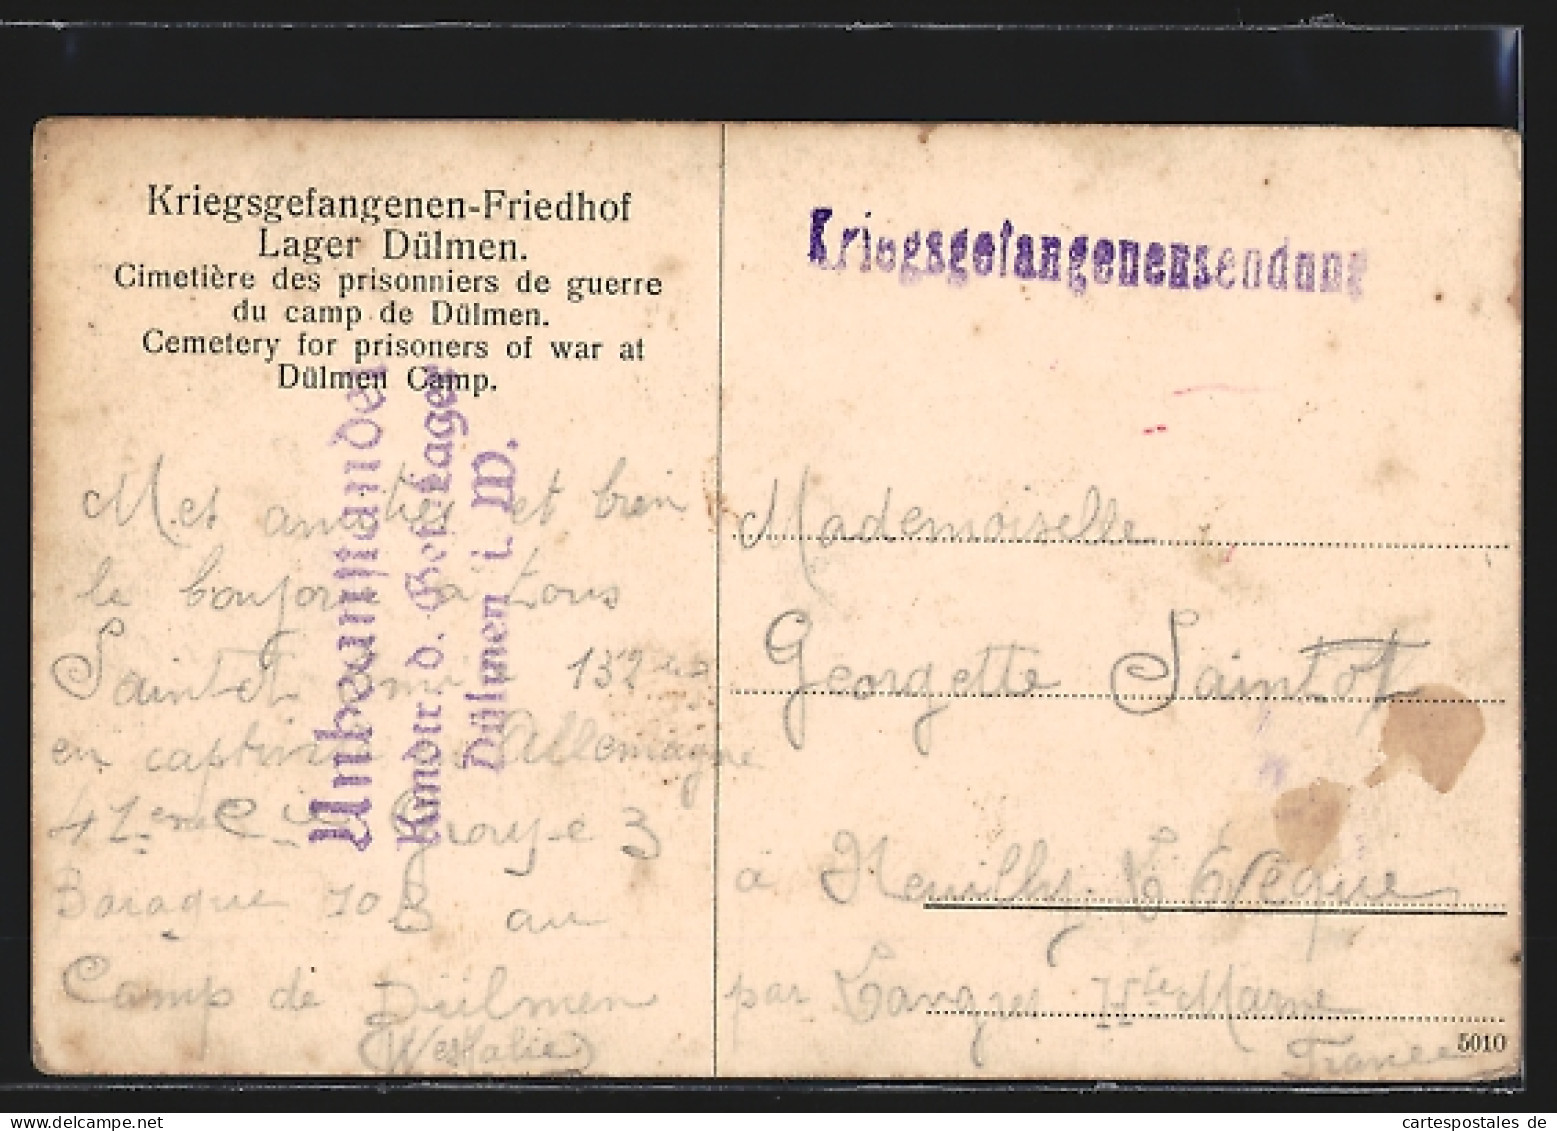 Kriegsgefangenen-Friedhof
Lager Dülmen.
Cimetière des prisonniers de guerre
du camp de Dülmen.
Cemetery for prisoners of war at
Dülmen Camp.
Unbeanstandet
Kmdtr. d. Gef. Lager
Dülmen i. W.
Mes amitiés et bien
le bonjour à tous
Saintot 132
en captivité Allemagne
41eme Cie Groupe 3
Baraque 70 B au
Camp de Dülmen
(Westfalie)
Kriegsgefangenensendung
Mademoiselle
Georgette Saintot
à Neuilly l'Evêque
par Langres Hte Marne
France
5010
www.cartespostales.de
cartespostales de